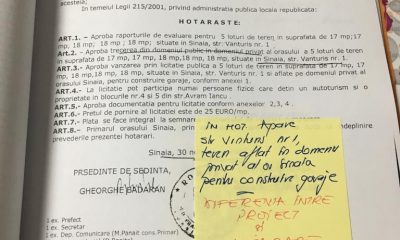 acesteia;
In temeiul Legii 215/2001, privind administratia publica locala republicata:
HOTARASTE:
ART.1. – Aproba raporturile de evaluare pentru 5 loturi de teren in suprafata de 17 mp;17
mp, 18 mp; 18 mp ; 18 mp; situate in Sinaia, str. Vanturis nr.1
Art.2. – Aproba trecerea din domeniul public in domeniul privat al orasului a 5 loturi de teren
in suprafata de 17 mp, 17 mp,18 mp,18 mp, 18 mp, situate in Sinaia, str. Vanturis nr. 1.
ART.3.- Aproba vanzarea prin licitatie publica a 5 loturi de teren in suprafata de 17 mp, 17
mp, 18 mp,18 mp, 18 mp, situate in Sinaia, str. Vanturis nr.1 si aflate pe domeniul privat al
orasului Sinaia, pentru construire garaje, conform anexei 1.
ART.4.- La licitatie pot participa numai persoane fizice care detin un autoturism si o
proprietate in blocurile nr.4 si 5 din str.Avram Iancu.
ART.5.- Aproba documentatia pentru licitatie conform anexelor 2,3, 4 .
ART.6.- Pretul de pornire al licitatiei este de 25 EURO/mp.
ART.7.- Plata se face integral la
ART.8.- Primarul orasului Sinaia, indeplinire
prevederile prezentei hotarari.
Sinaia, 30
PRSEDINTE DE SEDINTA,
GHEORGHE BADARAN
1 ex. Prefect
1 ex. Secretar
1 ex. Dep. Comunicare (M.Panait cons.Primar)
IN HOT. Apare
str Vinturis nr 1,
teren aflat in domeniu
privat al or Sinaia
pentru construire garaje
DIFERENTA INTRE
PROIECT
SI